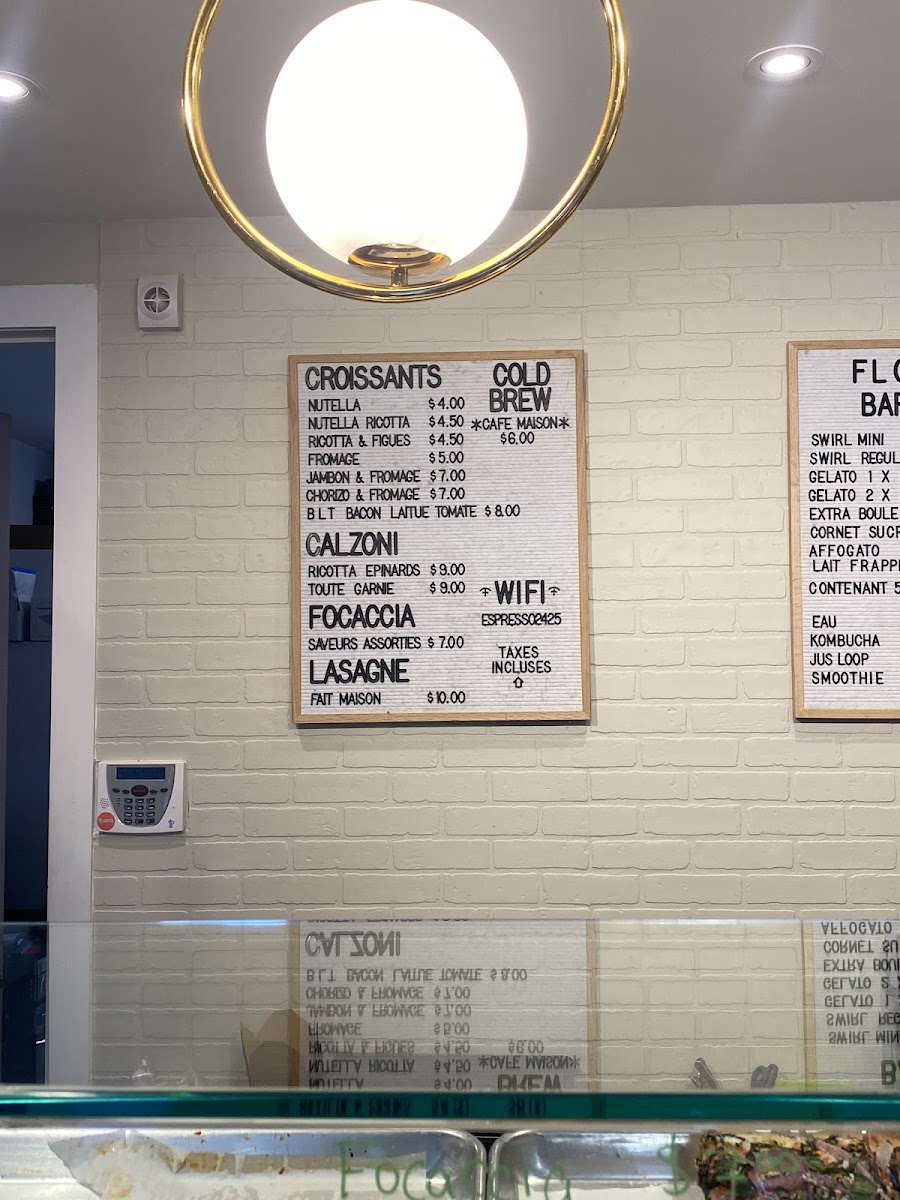 CROISSANTS
NUTELLA $4.00
NUTELLA RICOTTA $4.50
RICOTTA & FIGUES $4.50
FROMAGE $5.00
JAMBON & FROMAGE $7.00
CHORIZO & FROMAGE $7.00
BLT BACON LAITUE TOMATE $8.00
CALZONI
RICOTTA EPINARDS $9.00
TOUTE GARNIE $9.00
FOCACCIA
SAVEURS ASSORTIES $7.00
LASAGNE
FAIT MAISON $10.00
COLD
BREW
*CAFE MAISON*
$6.00
WIFI
ESPRESSO2425
TAXES
INCLUSES
FLO
BAR
SWIRL MINI
SWIRL REGUL
GELATO 1 X
GELATO 2 X
EXTRA BOULE
CORNET SUCR
AFFOGATO
LAIT FRAPP
CONTENANT 5
EAU
KOMBUCHA
JUS LOOP
SMOOTHIE
Focaccia $